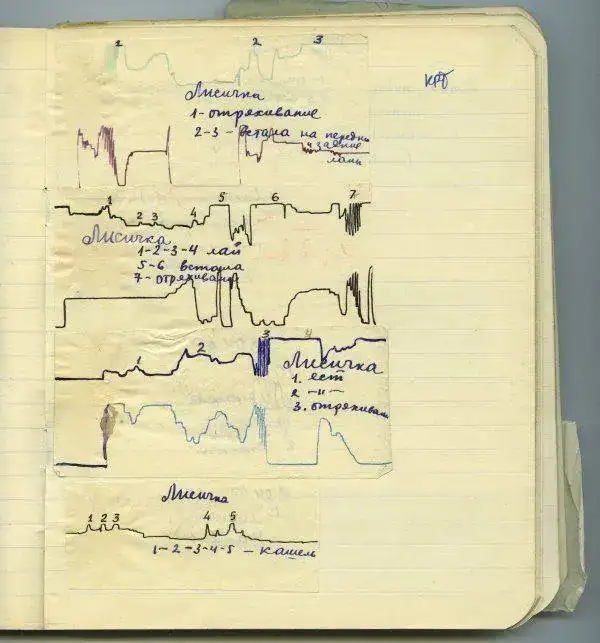 1 2 3
КРБ
Лисичка
1 - отряхивание
2-3 - встала на передн
задние
лапы
1 2 3 4 5 6 7
Лисичка
1-2-3-4 лай
5-6 встала
7- отряхивани
1 2 3 4
Лисичка
1. ест
2 -"-
3. отряхивани
Лисичка
1 2 3 4 5
1-2-3-4-5 - кашель